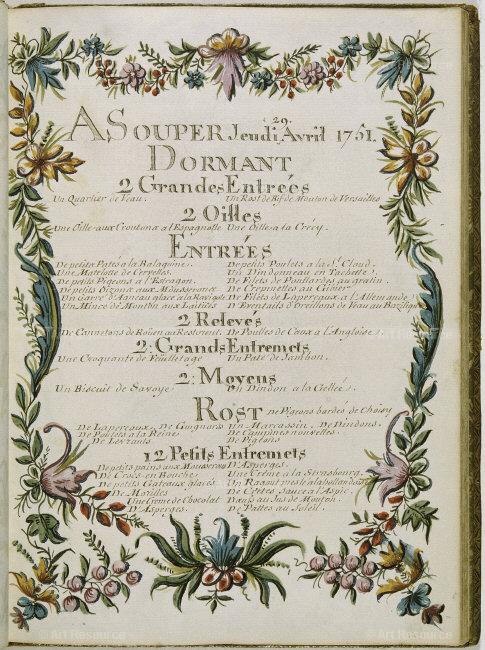 A Souper Jeudi, 29. Avril 1751.
Dormant
2 Grandes Entreés
Un Quartier de Veau. Un Rost de Bif de Mouton de Versailles
2 Oilles
Une Oille aux Croutons a l'Espagnolle Une Oille a la Crécy.
Entrées
De petits Patés a la Balaquine. De petits Poulets a la St. Cloud.
Une Matelotte de Cervelles. Un Dindonneau en
De petits Pigeons a l'Estragon. De Filets de Poullardes au gratin
De petits aux De Crepinettes au
Un Carré d'Agneau glacé a la Ravigote De Filets de Lapereaux a l'Allemande
Un Mince de Mouton aux Laitües D'Emontails d'Oreillons de Veau au
2 Relevés
De Cannetons de Roüen au De Poulles de Caux a l'Angloise
2: Grands Entremets
Une Croquante de Feuilletage Un Paté de Jambon.
2: Moyens
Un Biscuit de Savoye. Un Dindon a la Geleé.
Rost De Pigeons bardes de Choisy
De Lapereaux. De Guignards Un Marcassin. De Dindons.
De Poulets a la Reine De Campines nouvelles.
De Levrauts De Pigeons
12 Petits Entremets
De petits pains aux D'Asperges.
De en Une Crême a la Strasbourg.
De petits Gateaux glacés Un Ragout meslé
De Morilles De Crêtes Sauce a l'Aspic.
Une Creme de Chocolat Oeufs au Jus de Mouton.
D'Asperges. De Pattes au Soleil.
Art Resource
Art Resource